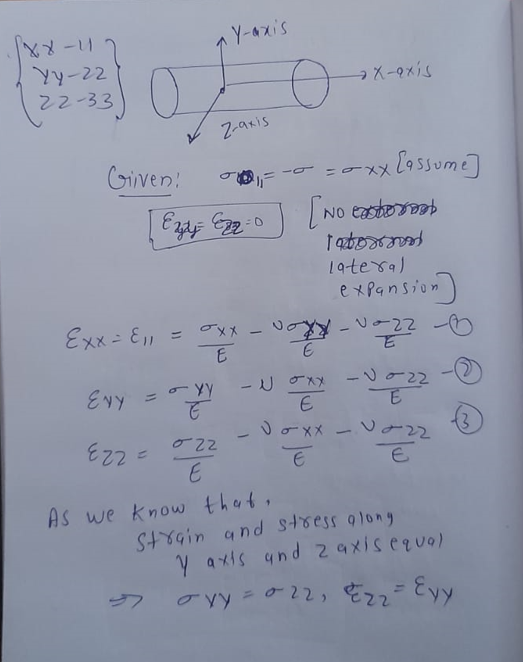 XX-11
YY-22
ZZ-33
Y-axis
X-axis
Z-axis
Given: σ11 = -σ = σxx [assume]
εyy = εzz = 0
[NO
lateral
expansion]
εxx = ε11 = σxx/E - νσyy/E - νσzz/E -①
εyy = σyy/E - ν σxx/E - ν σzz/E -②
εzz = σzz/E - ν σxx/E - ν σzz/E -③
As we know that,
strain and stress along
Y axis and Z axis equal
⇒ σyy = σzz, εzz = εyy